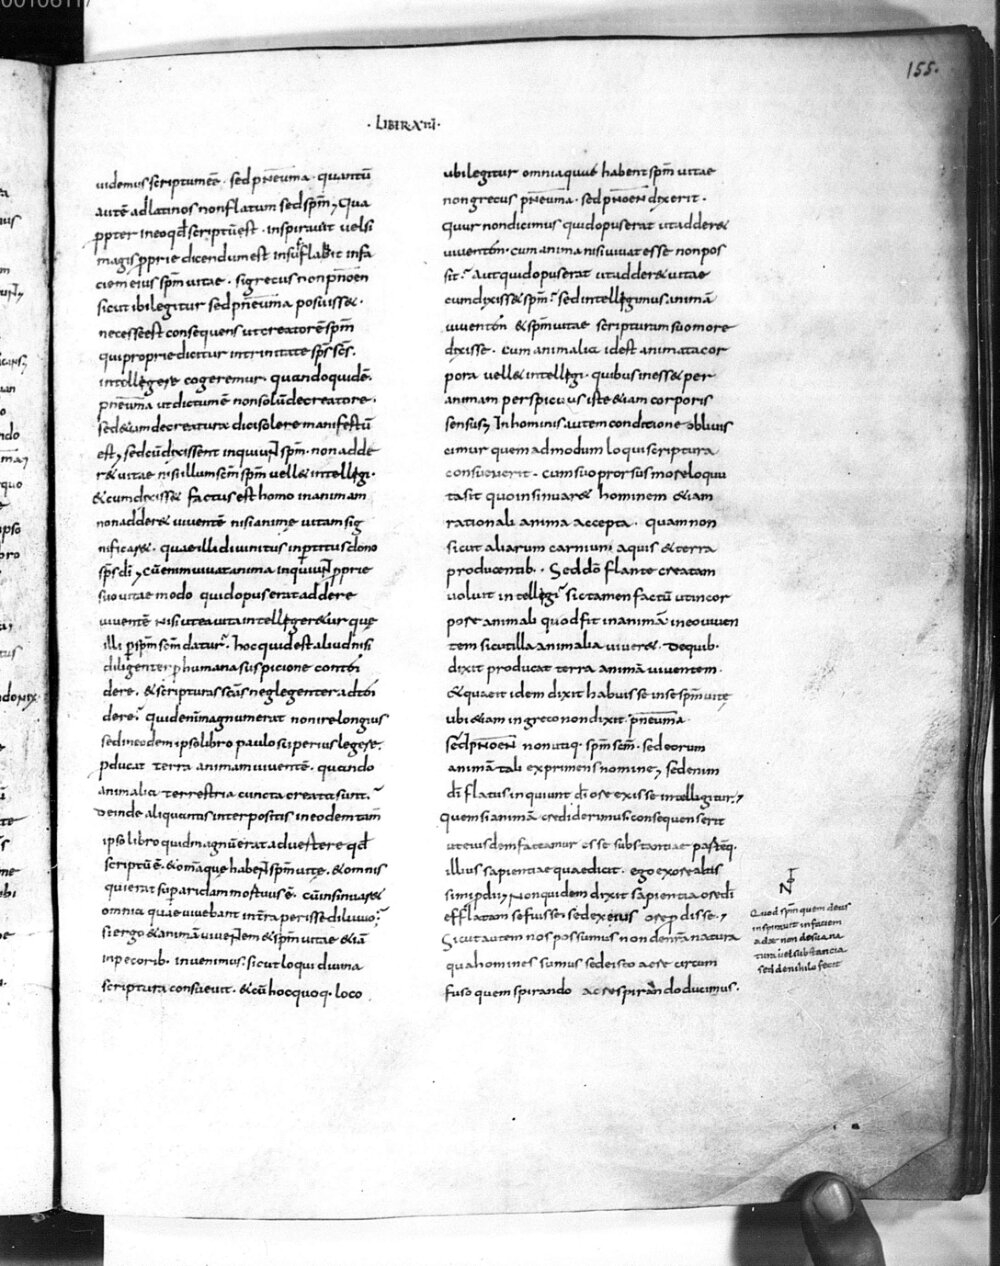 155.
· LIBER XIII ·
uidemus scriptum eē · sed pneuma · quantū
autē ad latinos non flatum sed spm̄; Qua
ꝓpter in eo qđ scriptū est · inspirauit uel si
magis ꝓprie dicendum est insufflauit in fa
ciem eius spm̄ uitae · si grecus non pnoen
sicut ibi legitur sed pneuma posuisset ·
necesse est consequens ut creatorē spm̄
qui proprie dicitur in trinitate sps̄ scs̄ ·
intellegere cogeremur · quando quidē ·
pneuma ut dictum ē non solū de creatore ·
sed etiam de creatura dici solere manifestū
est; sed cū dixissent inquiunt spm̄ · non adde
ret uitae nisi illum scm̄ spm̄ uellet intellegi ·
& cum dixisset factus est homo in animam
non adderet uiuentē nisi animę uitam sig
nificaret · quae illi diuinitus inpertitus dono
sps̄ dī; Cū enim uiuat anima inquiunt ꝓprie
suo uitae modo quid opus erat addere
uiuentē nisi ut ea uita intellegeretur quę
illi p spm̄ scm̄ datur · hoc quid est aliud nisi
diligenter p humana suspicione conten
dere · & scripturas scās neglegenter adten
dere · quid enim magnum erat non ire longius
sed in eodem ipso libro paulo superius legere ·
Producat terra animam uiuentē · quando
animalia terrestria cuncta creata sunt ·
Deinde aliquantis interpositis in eodem tam̄
ipso libro quid magnū erat aduertere qđ
scriptū ē · & omnia que habent spm̄ uitę · & omnis
qui erat super aridam mortuus ē · cū insinuaret
omnia quae uiuebant in terra perisse diluuio ·
Si ergo & animā uiuentem & spm̄ uitae etiā
in pecorib · inuenimus · sicut loqui diuina
scriptura consueuit · & cū hoc quoq · loco
ubi legitur omnia quae habent spm̄ uitae
non grecus pneuma · sed pnoen dixerit ·
Cur non dicimus quid opus erat ut adderet
uiuentem · cum anima nisi uiuat esse non pos
sit · Aut quid opus erat ut adderet uitae
cum dixisset spm̄ · sed intellegimus animā
uiuentem & spm̄ uitae scripturam suo more
dixisse · cum animalia id est animata cor
pora uellet intellegi · quibus inesset per
animam perspicuus iste etiam corporis
sensus; In hominis autem conditione obliuis
cimur quem ad modum loqui scriptura
consueuerit · cum suo prorsus more locuta
sit quo insinuaret hominem etiam
rationali anima accepta · quam non
sicut aliarum carnium aquis & terra
producentib · Sed dō flante creatam
uoluit intellegi · sic tamen factū ut in cor
pore animali quod fit in animā in eo uiuen
tem sicut illa animalia uiueret · De quib ·
dixit producat terra animā uiuentem ·
& quae itidem dixit habuisse in se spm̄ uitę
ubi etiam in greco non dixit pneuma
sed pnoen non utiq · spm̄ scm̄ · sed eorum
animā tali exprimens nomine; sed enim
dī flatus inquiunt dī ore exisse intellegitur;
quem si animā crediderimus consequens erit
ut eiusdem fateamur esse substantiae paremq ·
illius sapientiae quae dicit · ego ex ore altis
simi prodii; Non quidem dixit sapientia ore dī
efflatam se fuisse · sed ex eius ore prodisse ·;
Sicut autem nos possumus non de nr̄a natura
qua homines sumus sed de isto aere circum
fuso quem spirando ac respirando ducimus ·
Quod spm̄ quem deus
inspirauit in faciem
adae non de sua na
tura uel substantia
sed de nihilo fecit